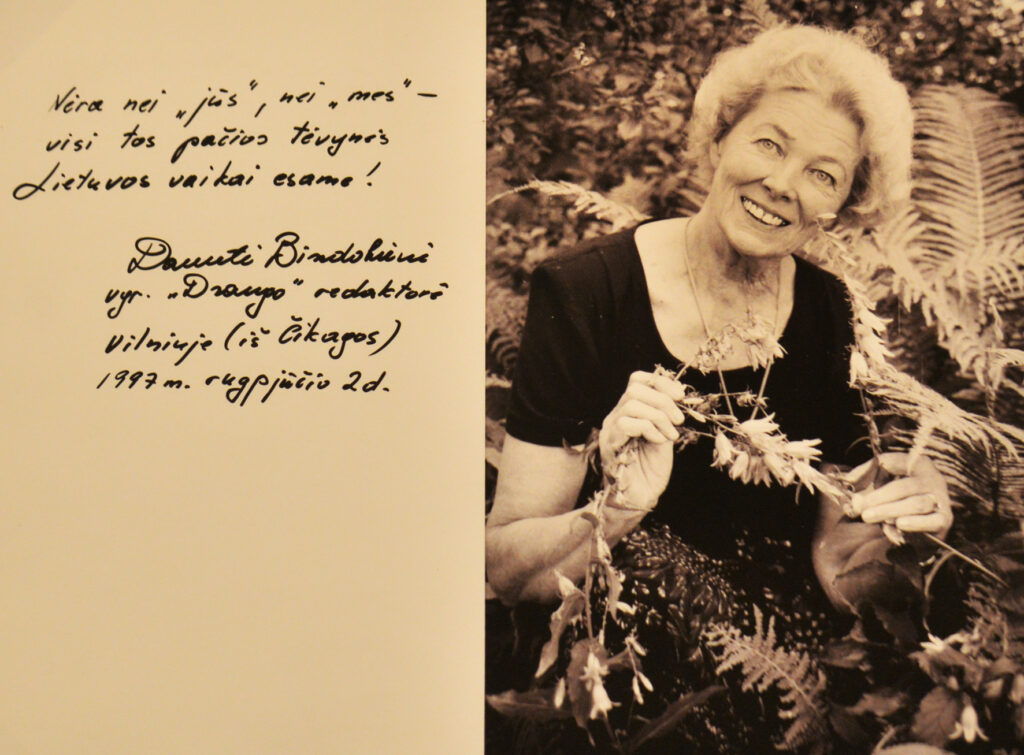 Nėra nei „jūs“, nei „mes“ –
visi tos pačios tėvynės
Lietuvos vaikai esame!
Danutė Bindokienė
vyr. „Draugo“ redaktorė
Vilniuje (iš Čikagos)
1997 m. rugpjūčio 2 d.